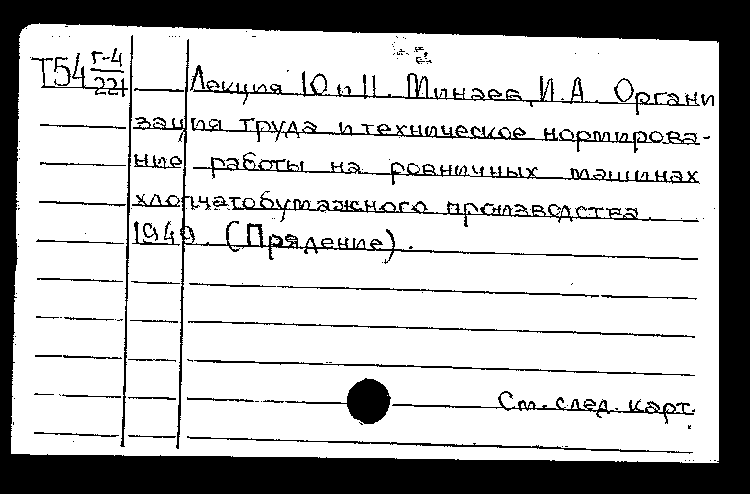 Т54 Г-4
221
Лекция 10 и 11. Минаев, И.А. Органи
зация труда и техническое нормирова-
ние работы на ровничных машинах
хлопчатобумажного производства.
1949. (Прядение).
См. след. карт.